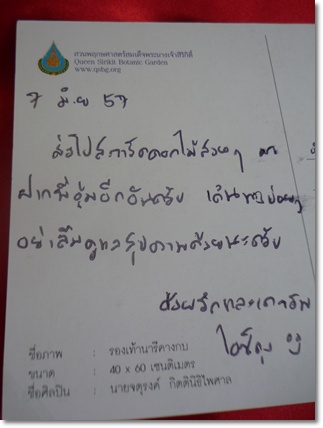 สวนพฤกษศาสตร์สมเด็จพระนางเจ้าสิริกิติ์
Queen Sirikit Botanic Garden
www.qsbg.org
7 มิ.ย 57
ส่งโปสการ์ดดอกไม้สวยๆ มา
ฝากพี่อุ้มอีกอันครับ
อย่าลืมดูแลสุขภาพด้วยนะครับ
ด้วยรักและเคารพ
ชื่อภาพ : รองเท้านารีคางกบ
ขนาด : 40 x 60 เซนติเมตร
ชื่อศิลปิน : นายจตุรงค์ กิตตินิธิไพศาล